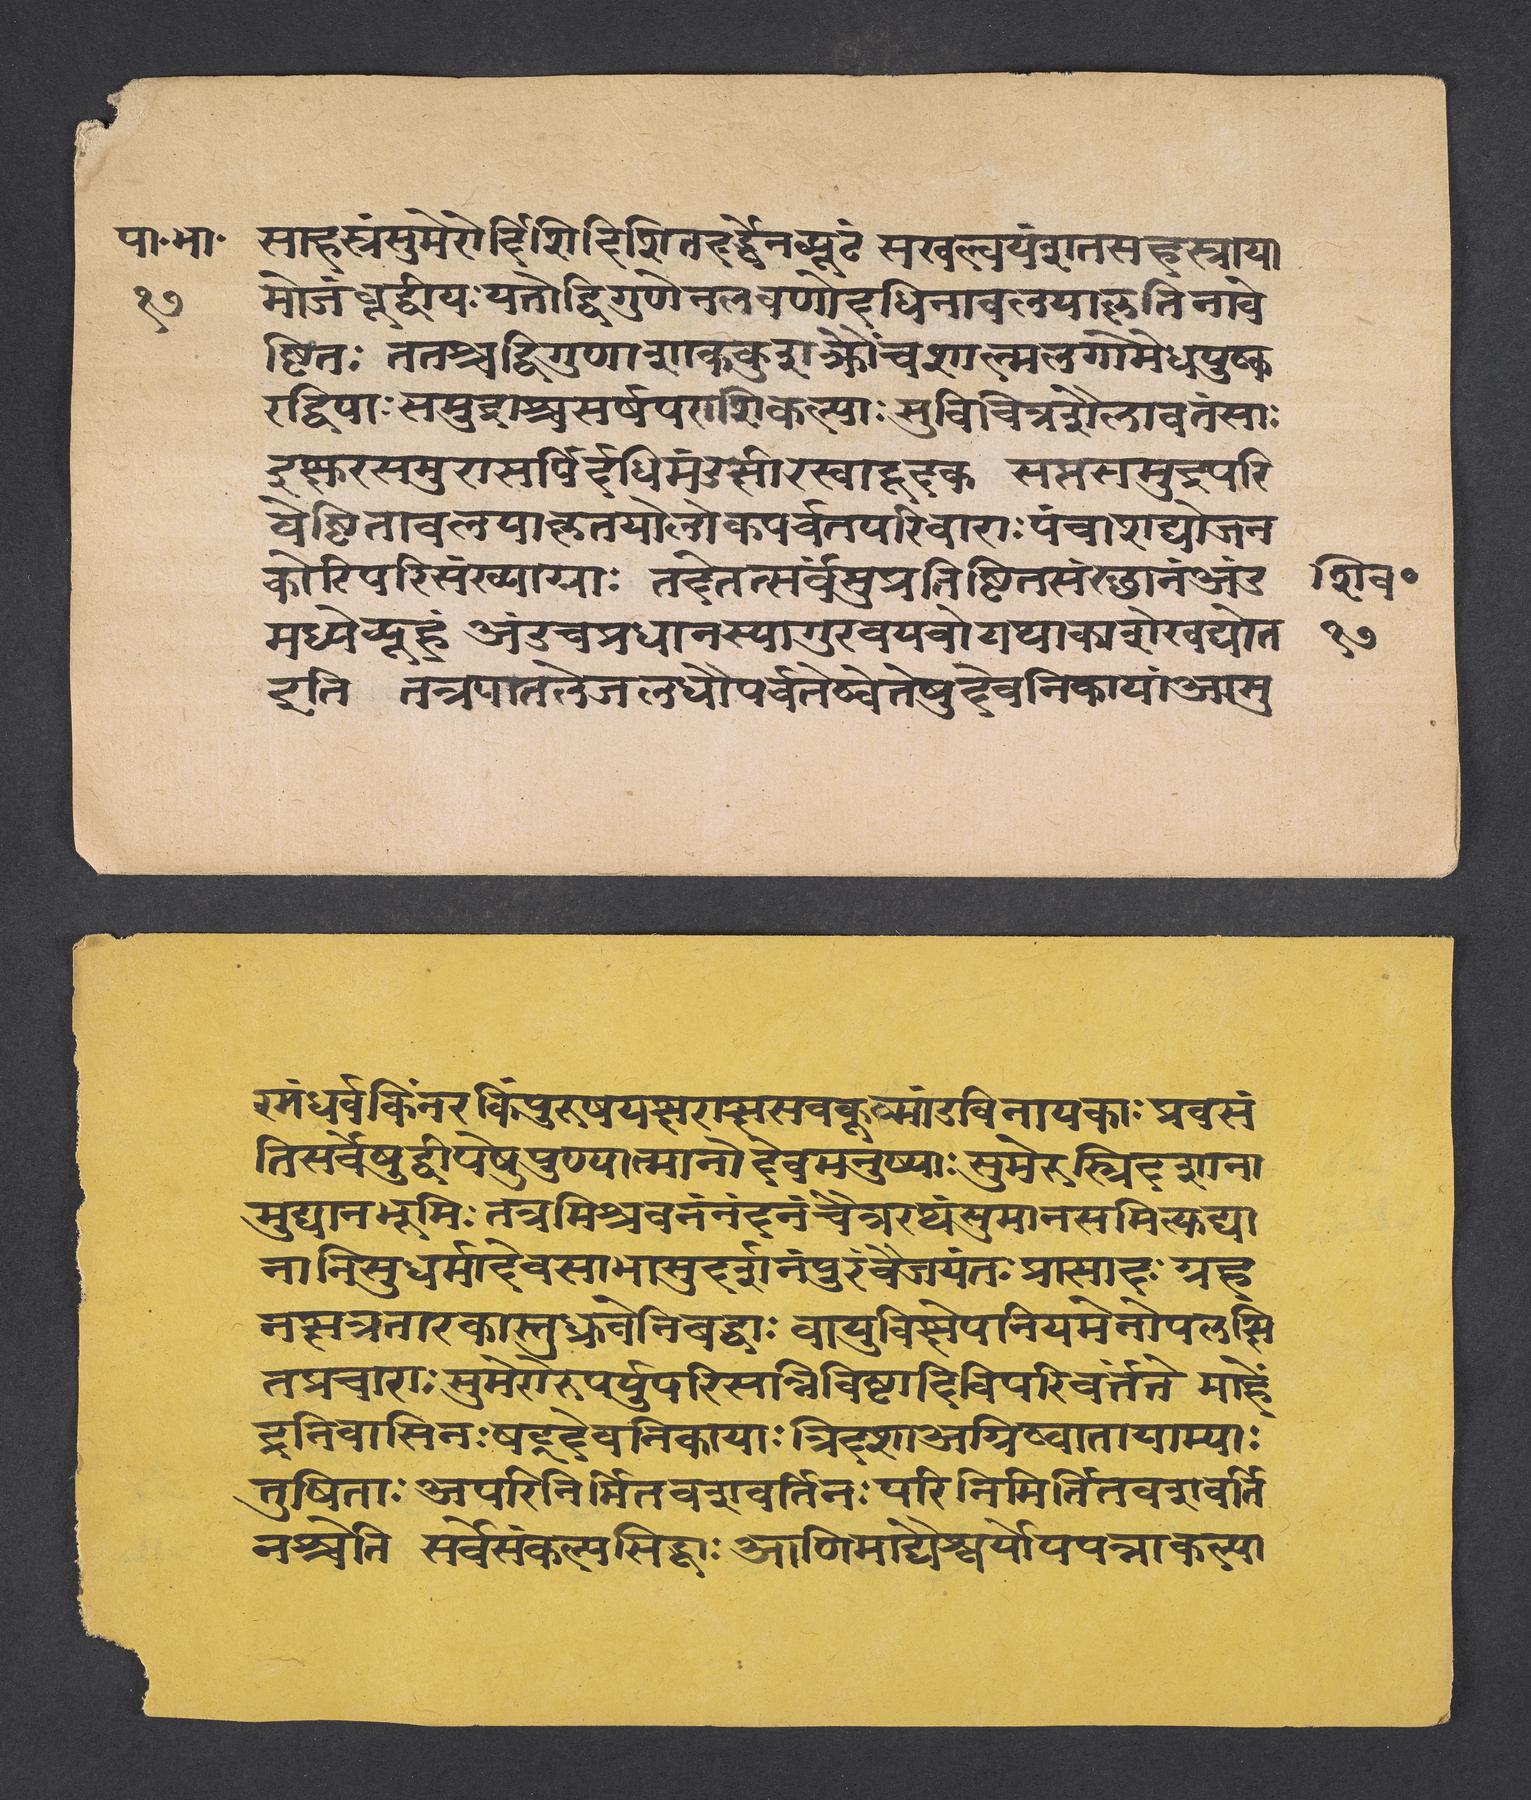 पा॰भा॰ साहस्रंसुमेरोर्दिशिदिशितदर्द्धेनव्यूढं सखल्वयंशतसहस्राया
१७ मोजंबूद्वीपःयतोद्विगुणेनलवणोदधिनावलयाकृतिनावे
ष्टितः ततश्चद्विगुणाशाककुशक्रौंचशाल्मलगोमेधपुष्क
रद्विपाःसमुद्राश्चसर्षपराशिकल्पाःसुविचित्रशैलावतंसाः
इक्षुरससुरासर्पिर्दधिमंडक्षीरस्वादूदक सप्तसमुद्रपरि
वेष्टितावलयाकृतयोलोकपर्वतपरिवाराःपंचाशद्योजन
कोटिपरिसंख्याग्याः तदेतत्सर्वंसुप्रतिष्टितसंस्थानंअंड शिव॰
मध्येव्यूढं अंडचप्रधानस्याणुरवयवोयथाकाशेखद्योत १७
इति तत्रपातलेजलधौपर्वतेष्वेतेषुदेवनिकायांअसु
रगंधर्वकिंनरकिंपुरूषयक्षराक्षसवकूष्मांडविनायकाः प्रवसं
तिसर्वेषुद्वीपेषुपुण्यात्मानोदेवमनुष्याःसुमेरुस्त्रिदशाना
मुद्यानभूमिःतत्रमिश्रवनंनंदनंचैत्ररथंसुमानसमित्युद्या
नानिसुधर्मादेवसाभासुदर्शनंपुरंवैजयंतःप्रासादःग्रह
नक्षत्रतारकास्तुध्रुवेनिबद्धाः वायुविक्षेपनियमेनोपलक्षि
तप्रचाराःसुमेरोरुपर्युपरिसन्निविष्टादिविपरिवर्तंतेमाहें
द्रनिवासिनःषट्देवनिकायाःत्रिदशाअग्निष्वातायाम्याः
तुषिताःअपरिनिर्मितवशवर्तिनःपरिनिमिर्तितवशवर्ति
नश्चेति सर्वेसंकल्पसिद्धाःअणिमाद्यैश्वर्योपपन्नाकल्पा